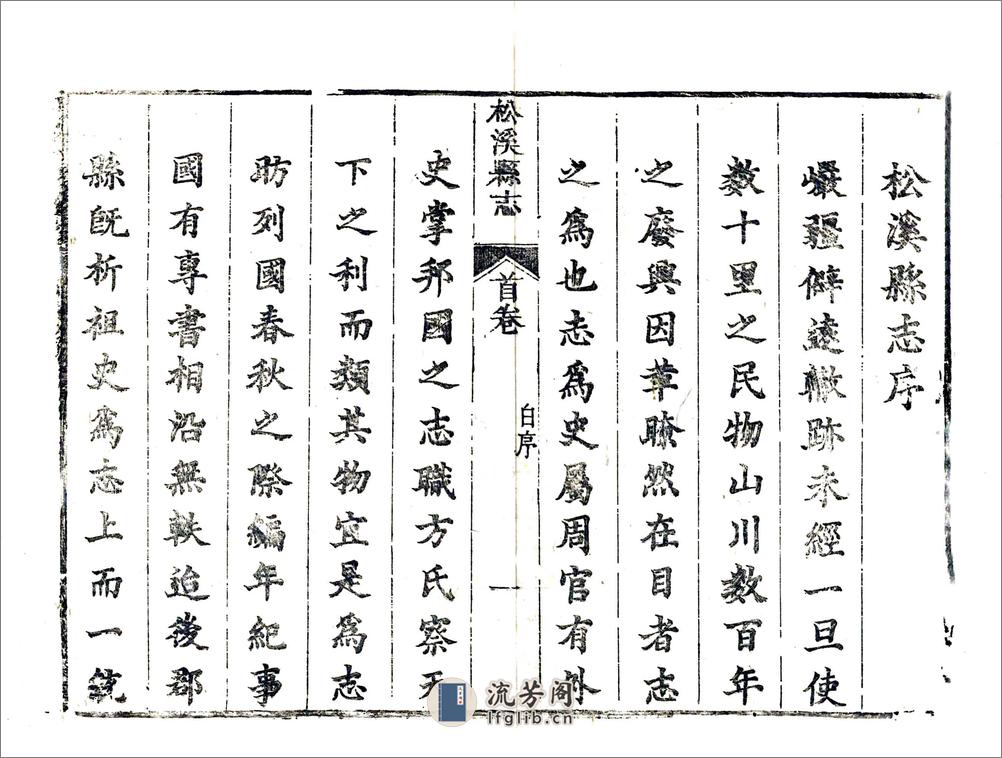 松溪縣志序
巖疆僻遠轍跡未經一旦使
數十里之民物山川數百年
之廢興因革瞭然在目者志
之爲也志爲史屬周官有外
松溪縣志
首卷
自序
一
史掌邦國之志職方氏察天
下之利而類其物宜是爲志
昉列國春秋之際編年紀事
國有專書相沿無軼迨後郡
縣旣析祖史爲志上而一統
流芳阁
lfglib.cn